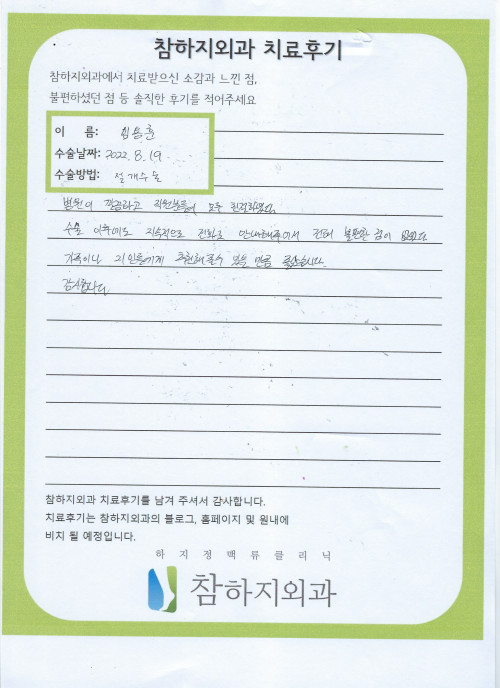 참하지외과 치료후기
참하지외과에서 치료받으신 소감과 느낀 점,
불편하셨던 점 등 솔직한 후기를 적어주세요
이 름:
수술날짜: 2022. 8. 19
수술방법: 절개수술
병원이 깔끔하고 직원분들이 모두 친절하였다.
수술 이후에도 지속적으로 전화로 안내해주셔서 전혀 불편한 점이 없었다.
가족이나 지인들에게 추천해줄수 있을 만큼 좋았습니다.
감사합니다.
참하지외과 치료후기를 남겨 주셔서 감사합니다.
치료후기는 참하지외과의 블로그, 홈페이지 및 원내에
비치 될 예정입니다.
하지정맥류클리닉
참하지외과